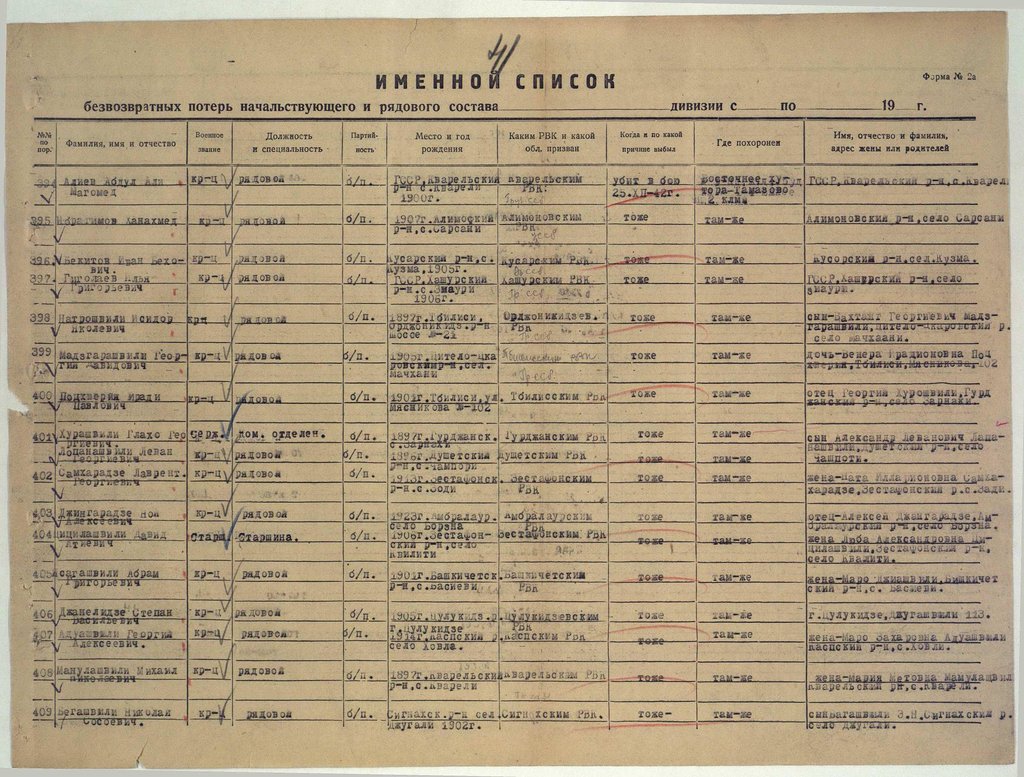 4
ИМЕННОЙ СПИСОК
Форма № 2а
безвозвратных потерь начальствующего и рядового состава дивизии с по 19 г.
№№ по пор. Фамилия, имя и отчество Военное звание Должность и специальность Партийность Место и год рождения Каким РВК и какой обл. призван Когда и по какой причине выбыл Где похоронен Имя, отчество и фамилия, адрес жены или родителей
394 Алиев Абдул Али кр-ц рядовой б/п. ГССР,Кварельский Кварельским убит в бою Восточнее хут ГССР,Кварельский р-н,с.Кварел
Магомед р-н с.Кварели РВК. 25.XII-42г. тора-Тамазово
1900г. 2 клм.
395 Ибрагимов Ханахмед кр-ц рядовой б/п. 1907г.Алимовский Алимоновским тоже там-же Алимоновский р-н,село Сарсани
р-н,с.Сарсани РВК
396. Бекитов Иван Бехо- кр-ц рядовой б/п. Кусарский р-н,с. Кусарским РВК. тоже там-же Кусорский р-н.сел.Кузма.
вич. Кузма,1905г.
397. Гиголаев Илья кр-ц рядовой б/п. ГССР.Хашурский Хашурским РВК тоже там-же ГССР,Хашурский р-н,село
Григорьевич р-н.с.Змаури Змаури.
1906г.
398 Натрошвили Исидор кр-ц рядовой б/п. 1897г.Тбилиси, Орджоникидзев. тоже там-же сын-Вахтанг Георгиевич Мадз-
Николевич Орджоникидз.р-н РВК гарашвили,Цители-Цкаровский р.
шоссе №-21 село Мачхаани.
399 Мадзгарашвили Геор- кр-ц рядовой б/п. 1905г.Цители-Цка тоже там-же дочь-Венера Ирадионовна Поц
гий Давидович ровскимр-н,сел. хверия,Тбилиси,Мясникова,102
Мачхани
400 Поцхверия Иради кр-ц рядовой б/п. 1904г.Тбилиси,ул. Тбилисским РВК тоже там-же отец Георгий Хурошвили,Гурд
Павлович Мясникова №-102 жанский р-н,село Зарнаки.
401 Хурашвили Глахо Гео Серж. дом. отделен. б/п. 1897г.Гурджанск. Гурджанским РВК тоже там-же сын Александр Леванович Лапа-
ргиевич. с.Зарнахи нашвили,Душетским р-н,село
Лопанашвили Леван кр-ц рядовой б/п. 1896г.Душетский Душетским РВК тоже там-же Чашпоти.
Георгиевич р-н,с.Чампори
402 Самхарадзе Лаврент. кр-ц рядовой б/п. 1913г.Зестафонск. Зестафонским тоже там-же жена-Ната Илларионовна Самха-
Георгиевич р-н.с.Зоди РВК харадзе,Зестафонский р.с.Зади.
403 Джингарадзе Ной кр-ц рядовой б/п. 1923г.Амбралаур. Амбралаурским тоже там-же отец-Алексей Джангарадзе,Ам-
Алексеевич село Борзна РВК бралаурский р-н,село Борзна.
404 Цицилашвили Давид Старш. Старшина. б/п. 1906г.Зестафон- Зестафонским РВК тоже там-же жена Люба Александровна Ци-
ский р-н,село цилашвили,Зестафонский р-н,
Квилити село Квалити.
405 Асагашвили Абрам кр-ц рядовой б/п. 1901г.Башкичетск. Башкичетским тоже там-же жена-Маро Джиашвили,Бишкичет
Григорьевич р-н,с.Басиеви РВК ский р-н,с. Басиеви.
406 Джанелидзе Степан кр-ц рядовой б/п. 1905г.Цулукидз.р. Цулукидзевским тоже там-же г.Цулукидзе,Джугашвили 113.
Васильевич г.Цулукидзе РВК
407 Адуашвили Георгий кр-ц рядовой б/п. 1914г.Каспский р. Каспским РВК тоже там-же жена-Маро Захаровна Адуашвили
Алексеевич. село Ховла. Каспский р-н,с.Ховли.
408 Манулашвили Михаил кр-ц рядовой б/п. 1897г.Кварельский Кварельским РВК тоже там-же жена-Мария Метовна Мамулашвил
Николаевич р-н,с.Кварели Кварельский рн,с.Кварели.
409 Бегашвили Николай кр-ц рядовой б/п. Сигнахск.р-н сел. Сигнхским РВК. тоже- там-же сынБагашвили З.Н.Сигнахским р.
Сосоевич. Джугали 1902г. село Джугали.